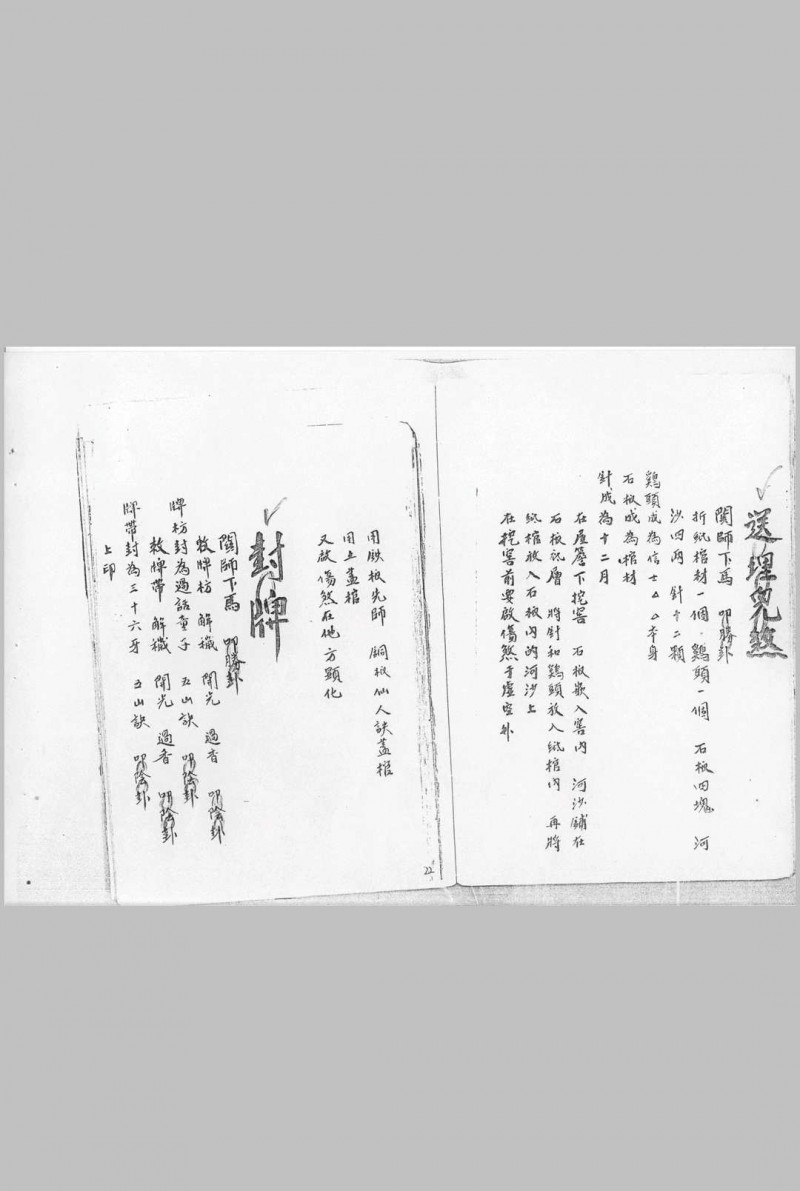 送埋兒煞
関師下馬 叩勝卦
折紙棺材一個．鷄頭一個 石板四塊 河
沙四両 針十二顆
鷄頭成為信士△△本身
石板成為棺材
針成為十二月
在屋簷下挖窖 石板嵌入窖內 河沙鋪在
石板底層 將針和鷄頭放入紙棺內 再將
紙棺放入石板內的河沙上
在挖窖前要啟傷煞于虛空外
用鉄板先師 銅板仙人訣蓋棺
用土蓋棺
又啟傷煞在他方顯化
封牌
関師下馬 叩勝卦
牧牌枋 解穢 開光 過香 叩陰卦
牌枋封為過話童子 五山訣 叩陰卦
敕牌帶 解穢 開光 過香 叩陰卦
牌帶封為三十六牙 五山訣 叩陰卦
上印
22